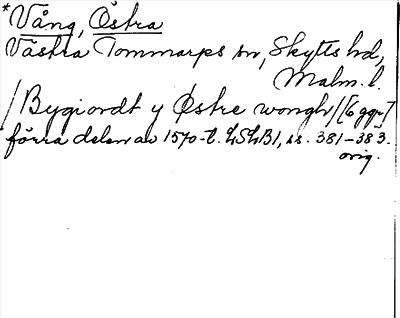 *Vång, Östra
Västra Tommarps sn, Skytts hd,
Malm. l.
/Bygiordt y Østre wongh/ [6 ggr]
förra delen av 1570-t. LSLB1, ss. 381-383.
orig.